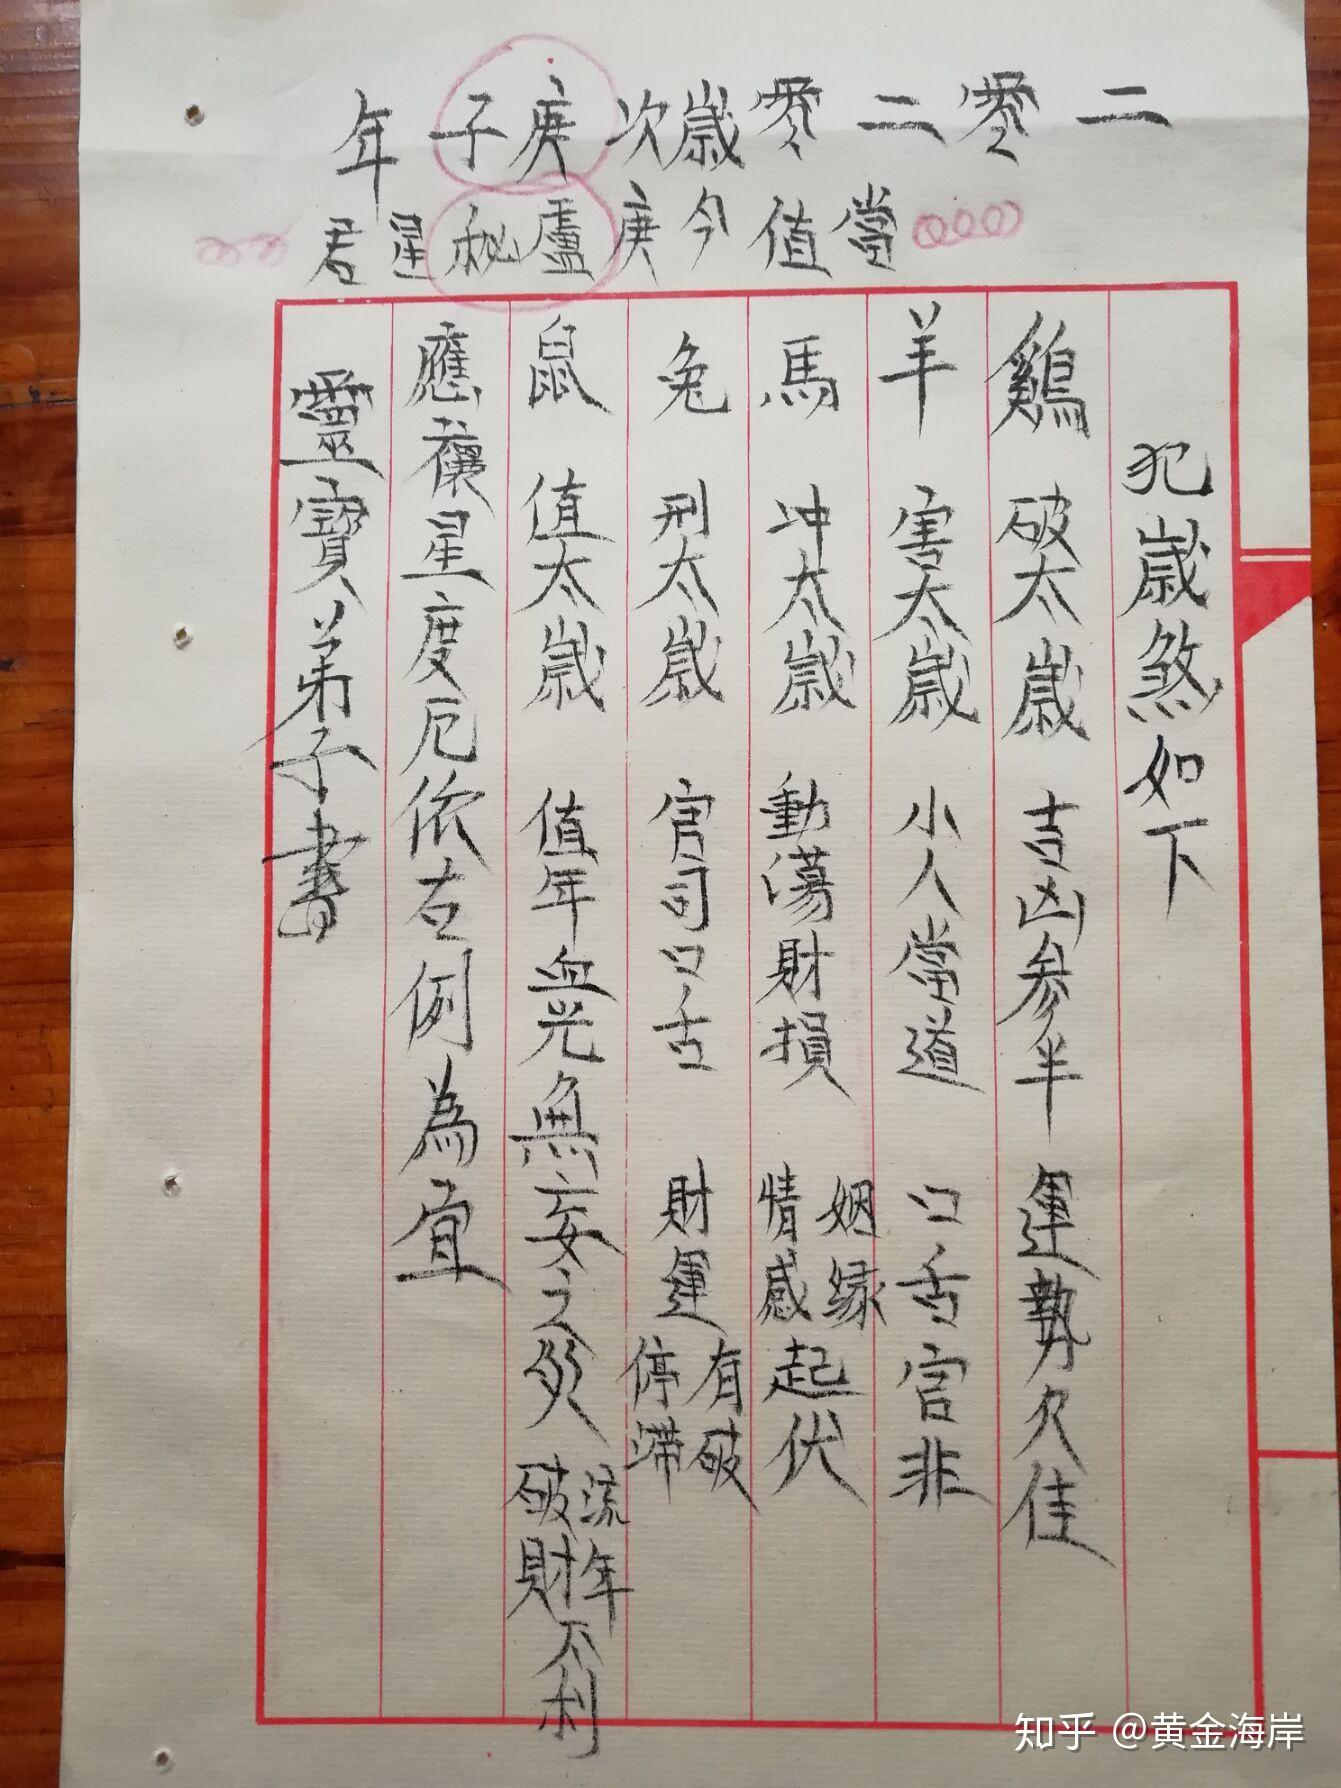 二零二零歲次庚子年
當值今庚盧秘星君
犯歲煞如下
鷄 破太歲 吉凶參半 運勢欠佳
羊 害太歲 小人當道 口舌官非
馬 冲太歲 動蕩財損 姻緣情感起伏
兔 刑太歲 官司口舌 財運有破停滯
鼠 值太歲 值年血光無妄之災 流年不利破財
應禳星度厄依左例為宜
靈寶弟子書
知乎 @黄金海岸